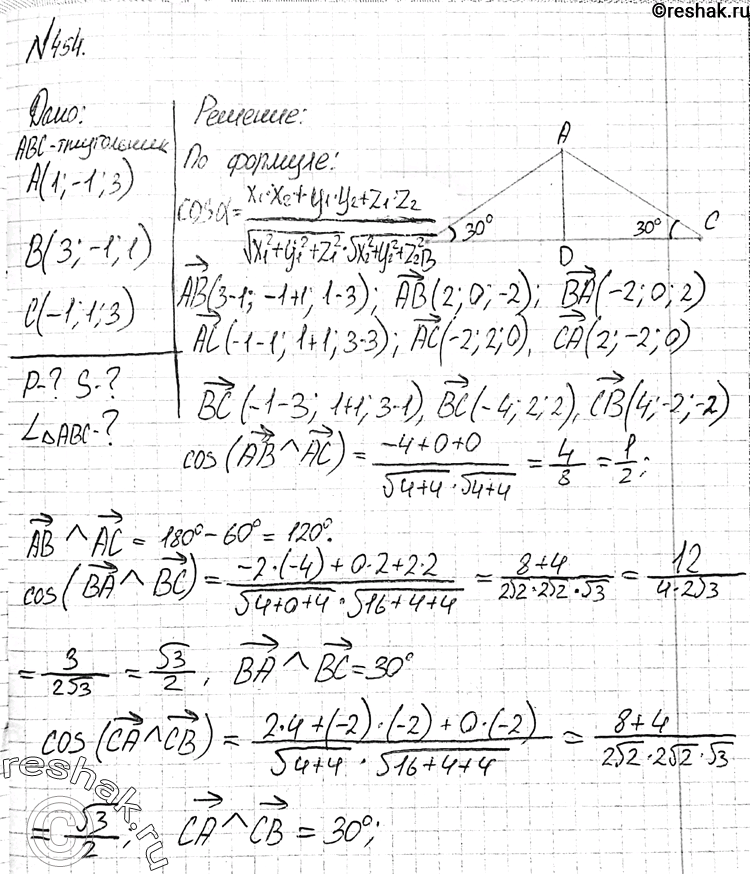 ©reshak.ru
№454.
Дано:
ABC-треугольник
A(1;-1;3)
B(3;-1;1)
C(-1;1;3)
P-? S-?
∠△ABC-?
Решение:
По формуле:
cosα = (x₁·x₂+y₁·y₂+z₁·z₂)/(√(x₁²+y₁²+z₁²)·√(x₂²+y₂²+z₂²))
A
B
30°
30°
C
D
AB(3-1; -1+1; 1-3); AB(2; 0; -2); BA(-2; 0; 2)
AC(-1-1; 1+1; 3-3); AC(-2; 2; 0), CA(2; -2; 0)
BC(-1-3; 1+1; 3-1), BC(-4; 2; 2), CB(4; -2; -2)
cos(AB^AC) = (-4+0+0)/(√(4+4)·√(4+4)) = 4/8 = 1/2;
AB^AC = 180°-60° = 120°.
cos(BA^BC) = (-2·(-4)+0·2+2·2)/(√(4+0+4)·√(16+4+4)) = (8+4)/(2√2·2√2·√3) = 12/(4·2√3)
= 3/(2√3) = √3/2, BA^BC=30°
cos(CA^CB) = (2·4+(-2)·(-2)+0·(-2))/(√(4+4)·√(16+4+4)) = (8+4)/(2√2·2√2·√3)
= √3/2; CA^CB = 30°;
reshak.ru